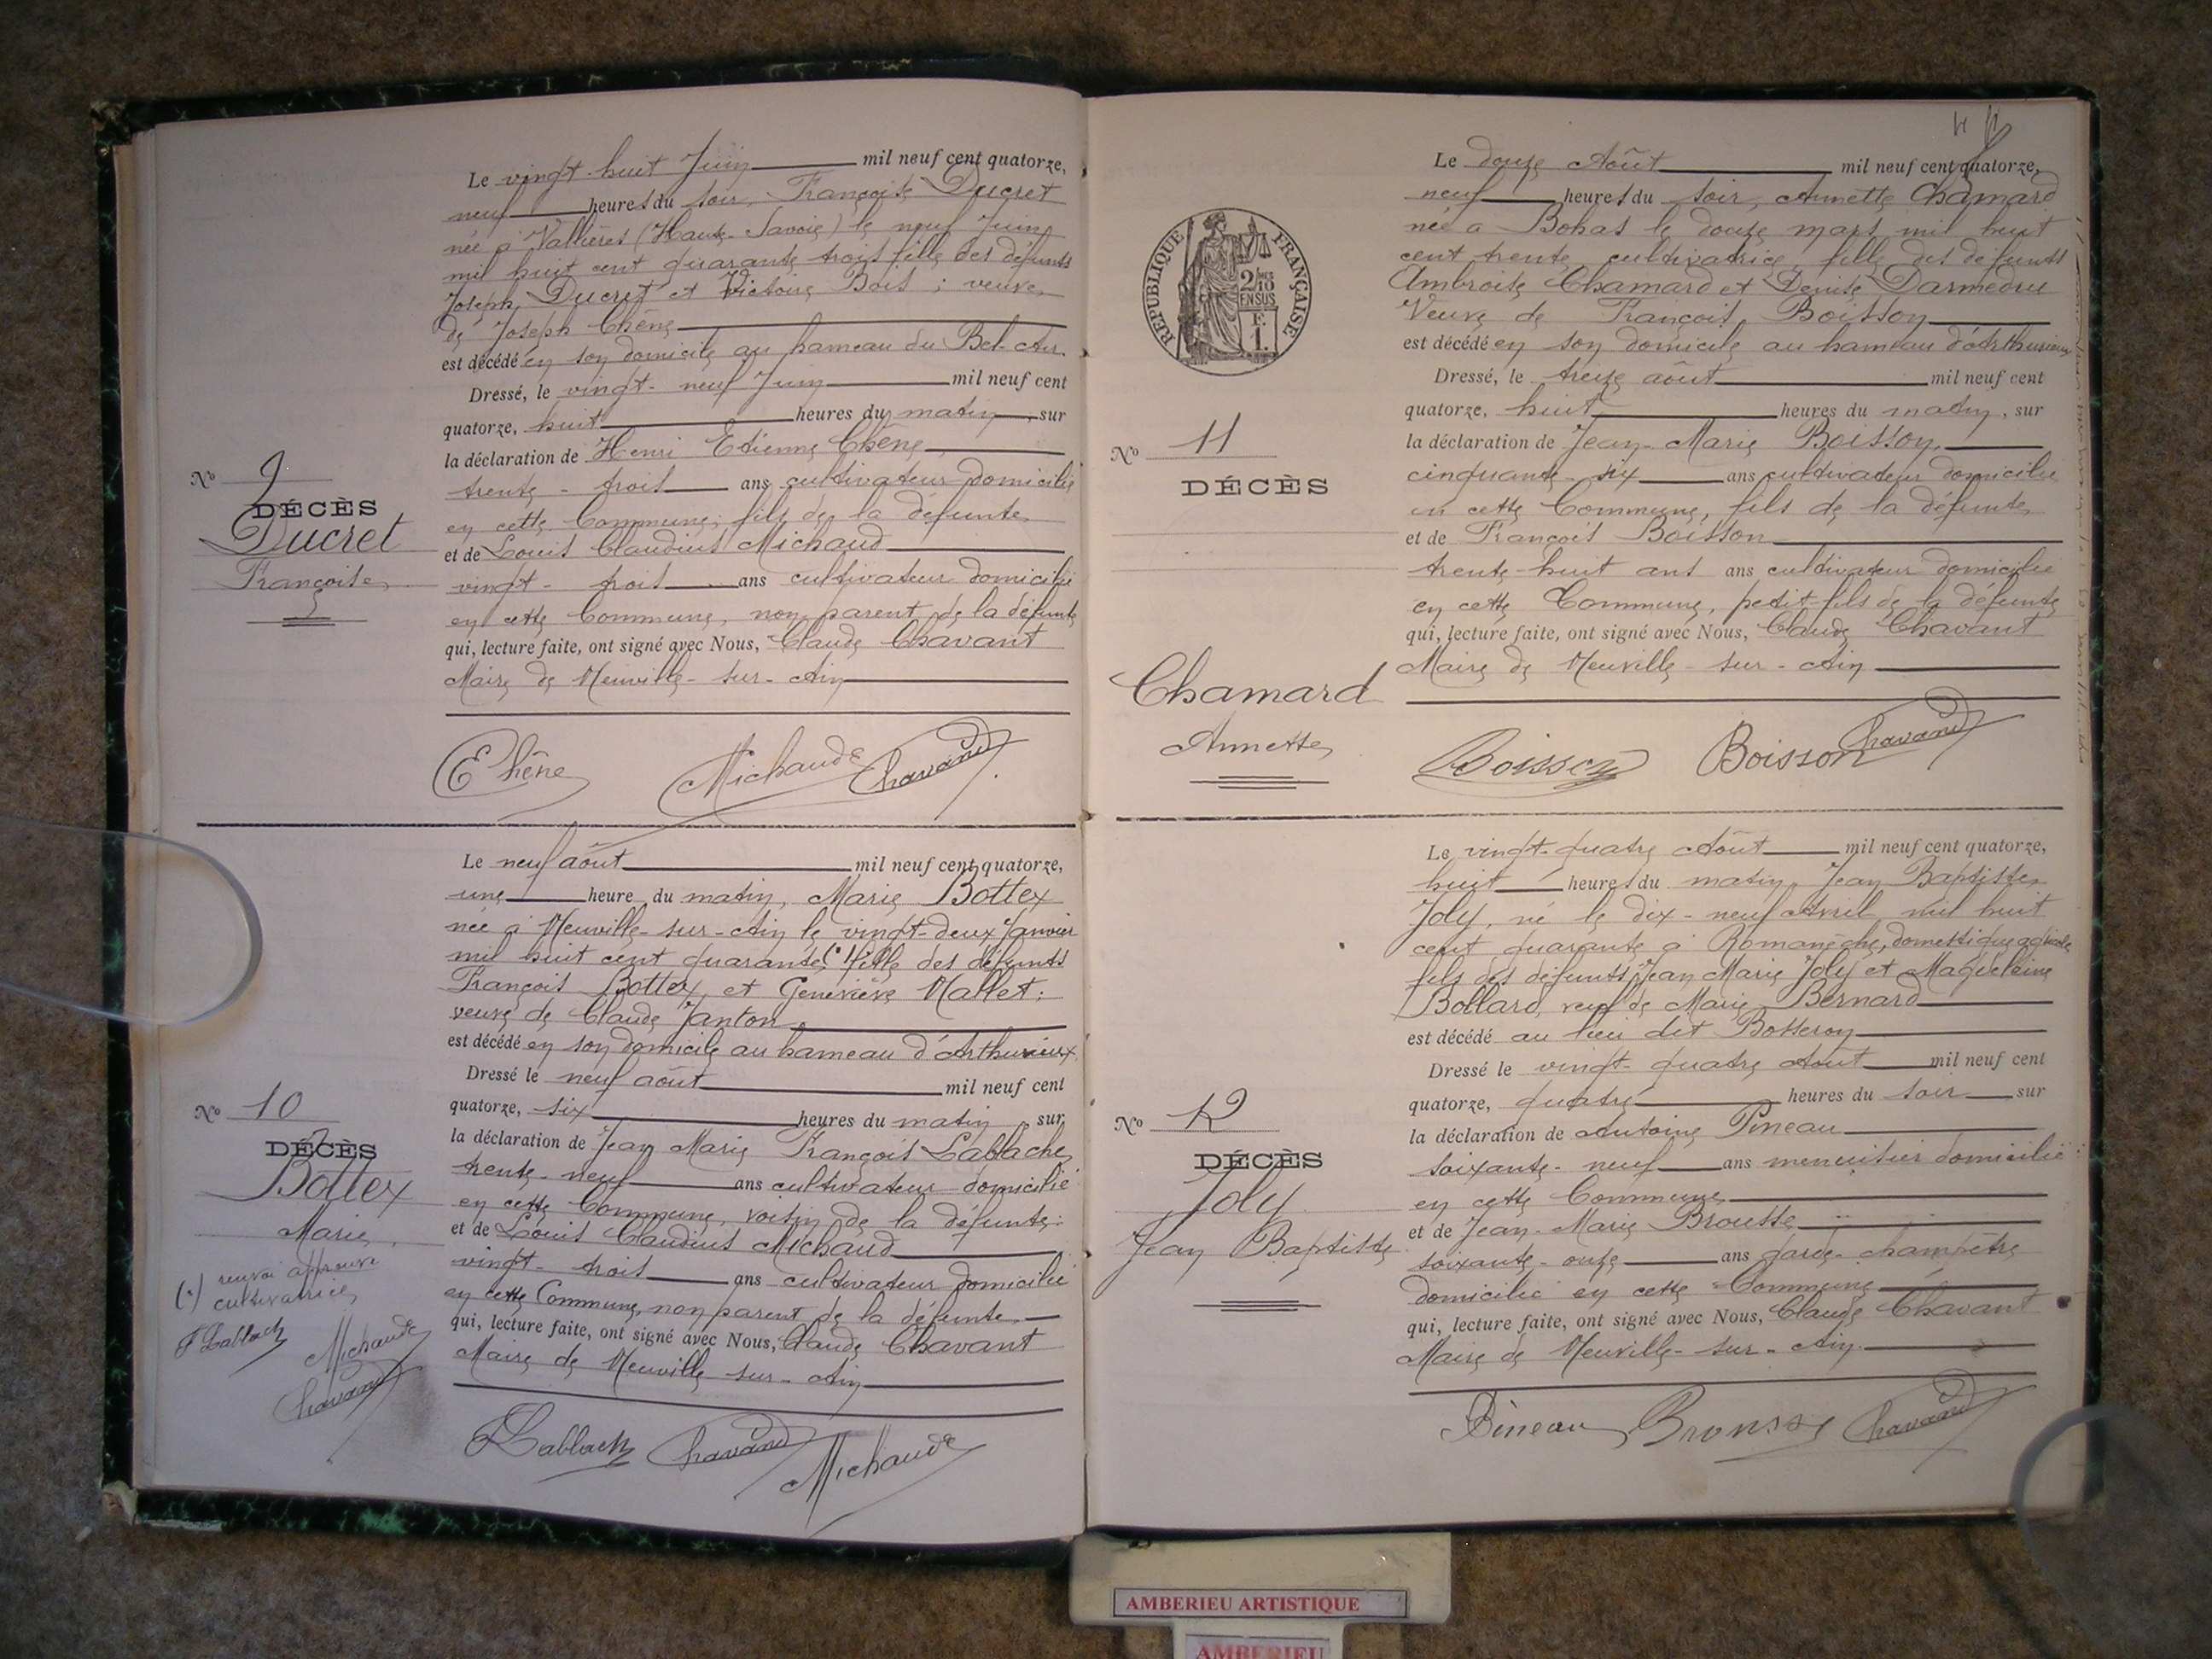 Le vingt-huit Juin mil neuf cent quatorze,
neuf heures du soir, Françoise Ducret
née à Vallières (Haute-Savoie) le neuf Juin
mil huit cent quarante trois fille des défunts
Joseph Ducret et Victoire Bois ; veuve
de Joseph Chêne
est décédé en son domicile au hameau du Bel-Air.
Dressé, le vingt-neuf Juin mil neuf cent
quatorze, huit heures du matin, sur
la déclaration de Henri Etienne Chêne
trente-trois ans cultivateur domicilié
en cette Commune, fils de la défunte
et de Louis Claudius Michaud
vingt-trois ans cultivateur domicilié
en cette Commune, non parent de la défunte
qui, lecture faite, ont signé avec Nous, Claude Chavant
Maire de Neuville-sur-Ain
No 9
DÉCÈS
Ducret
Françoise
E Chêne Michaud Chavant
Le neuf août mil neuf cent quatorze,
une heure du matin, Marie Bottex
née à Neuville-sur-Ain le vingt-deux Janvier
mil huit cent quarante (*) fille des défunts
François Bottex et Geneviève Mallet ;
veuve de Claude Janton
est décédé en son domicile au hameau d'Arthurieux.
Dressé le neuf août mil neuf cent
quatorze, six heures du matin, sur
la déclaration de Jean Marie François Lablache
trente-neuf ans cultivateur domicilié
en cette Commune, voisin de la défunte ;
et de Louis Claudius Michaud
vingt-trois ans cultivateur domicilié
en cette Commune, non parent de la défunte
qui, lecture faite, ont signé avec Nous, Claude Chavant
Maire de Neuville-sur-Ain
No 10
DÉCÈS
Bottex
Marie
(*) renvoi approuvé
cultivatrice
F Lablach
Michaud
Chavant
F Lablach Chavant Michaud
RÉPUBLIQUE FRANÇAISE
2/10
EN SUS
1 F.
Le douze Août mil neuf cent quatorze,
neuf heures du soir, Annette Chamard
née à Bohas le douze mars mil huit
cent trente, cultivatrice, fille des défunts
Ambroise Chamard et Denise Darmedru
Veuve de François Boisson
est décédé en son domicile au hameau d'Arthurieux
Dressé, le treize août mil neuf cent
quatorze, huit heures du matin, sur
la déclaration de Jean-Marie Boisson
cinquante-six ans cultivateur domicilié
en cette Commune, fils de la défunte
et de François Boisson
trente-huit ans ans cultivateur domicilié
en cette Commune, petit-fils de la défunte
qui, lecture faite, ont signé avec Nous, Claude Chavant
Maire de Neuville-sur-Ain
No 11
DÉCÈS
Chamard
Annette
Boisson Boisson Chavant
Le vingt-quatre Août mil neuf cent quatorze,
huit heures du matin, Jean Baptiste
Joly, né le dix-neuf Avril mil huit
cent quarante à Romanèche, domestique agricole
fils des défunts Jean Marie Joly et Magdeleine
Bollard, veuf de Marie Bernard
est décédé au lieu dit Bosseron
Dressé le vingt-quatre Août mil neuf cent
quatorze, quatre heures du soir sur
la déclaration de Antoine Pineau
soixante-neuf ans menuisier domicilié
en cette Commune
et de Jean-Marie Brousse
soixante-onze ans garde-champêtre
domicilié en cette Commune
qui, lecture faite, ont signé avec Nous, Claude Chavant
Maire de Neuville-sur-Ain
No 12
DÉCÈS
Joly
Jean Baptiste
Pineau Brousse Chavant
AMBERIEU ARTISTIQUE
AMBERIEU